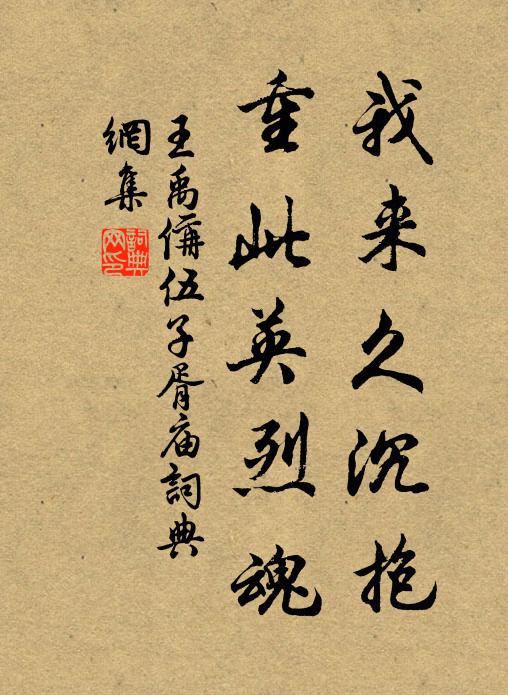 我来久沉抱
重此英烈魂
王禹偁伍子胥庙詞典
網集
詞典网印